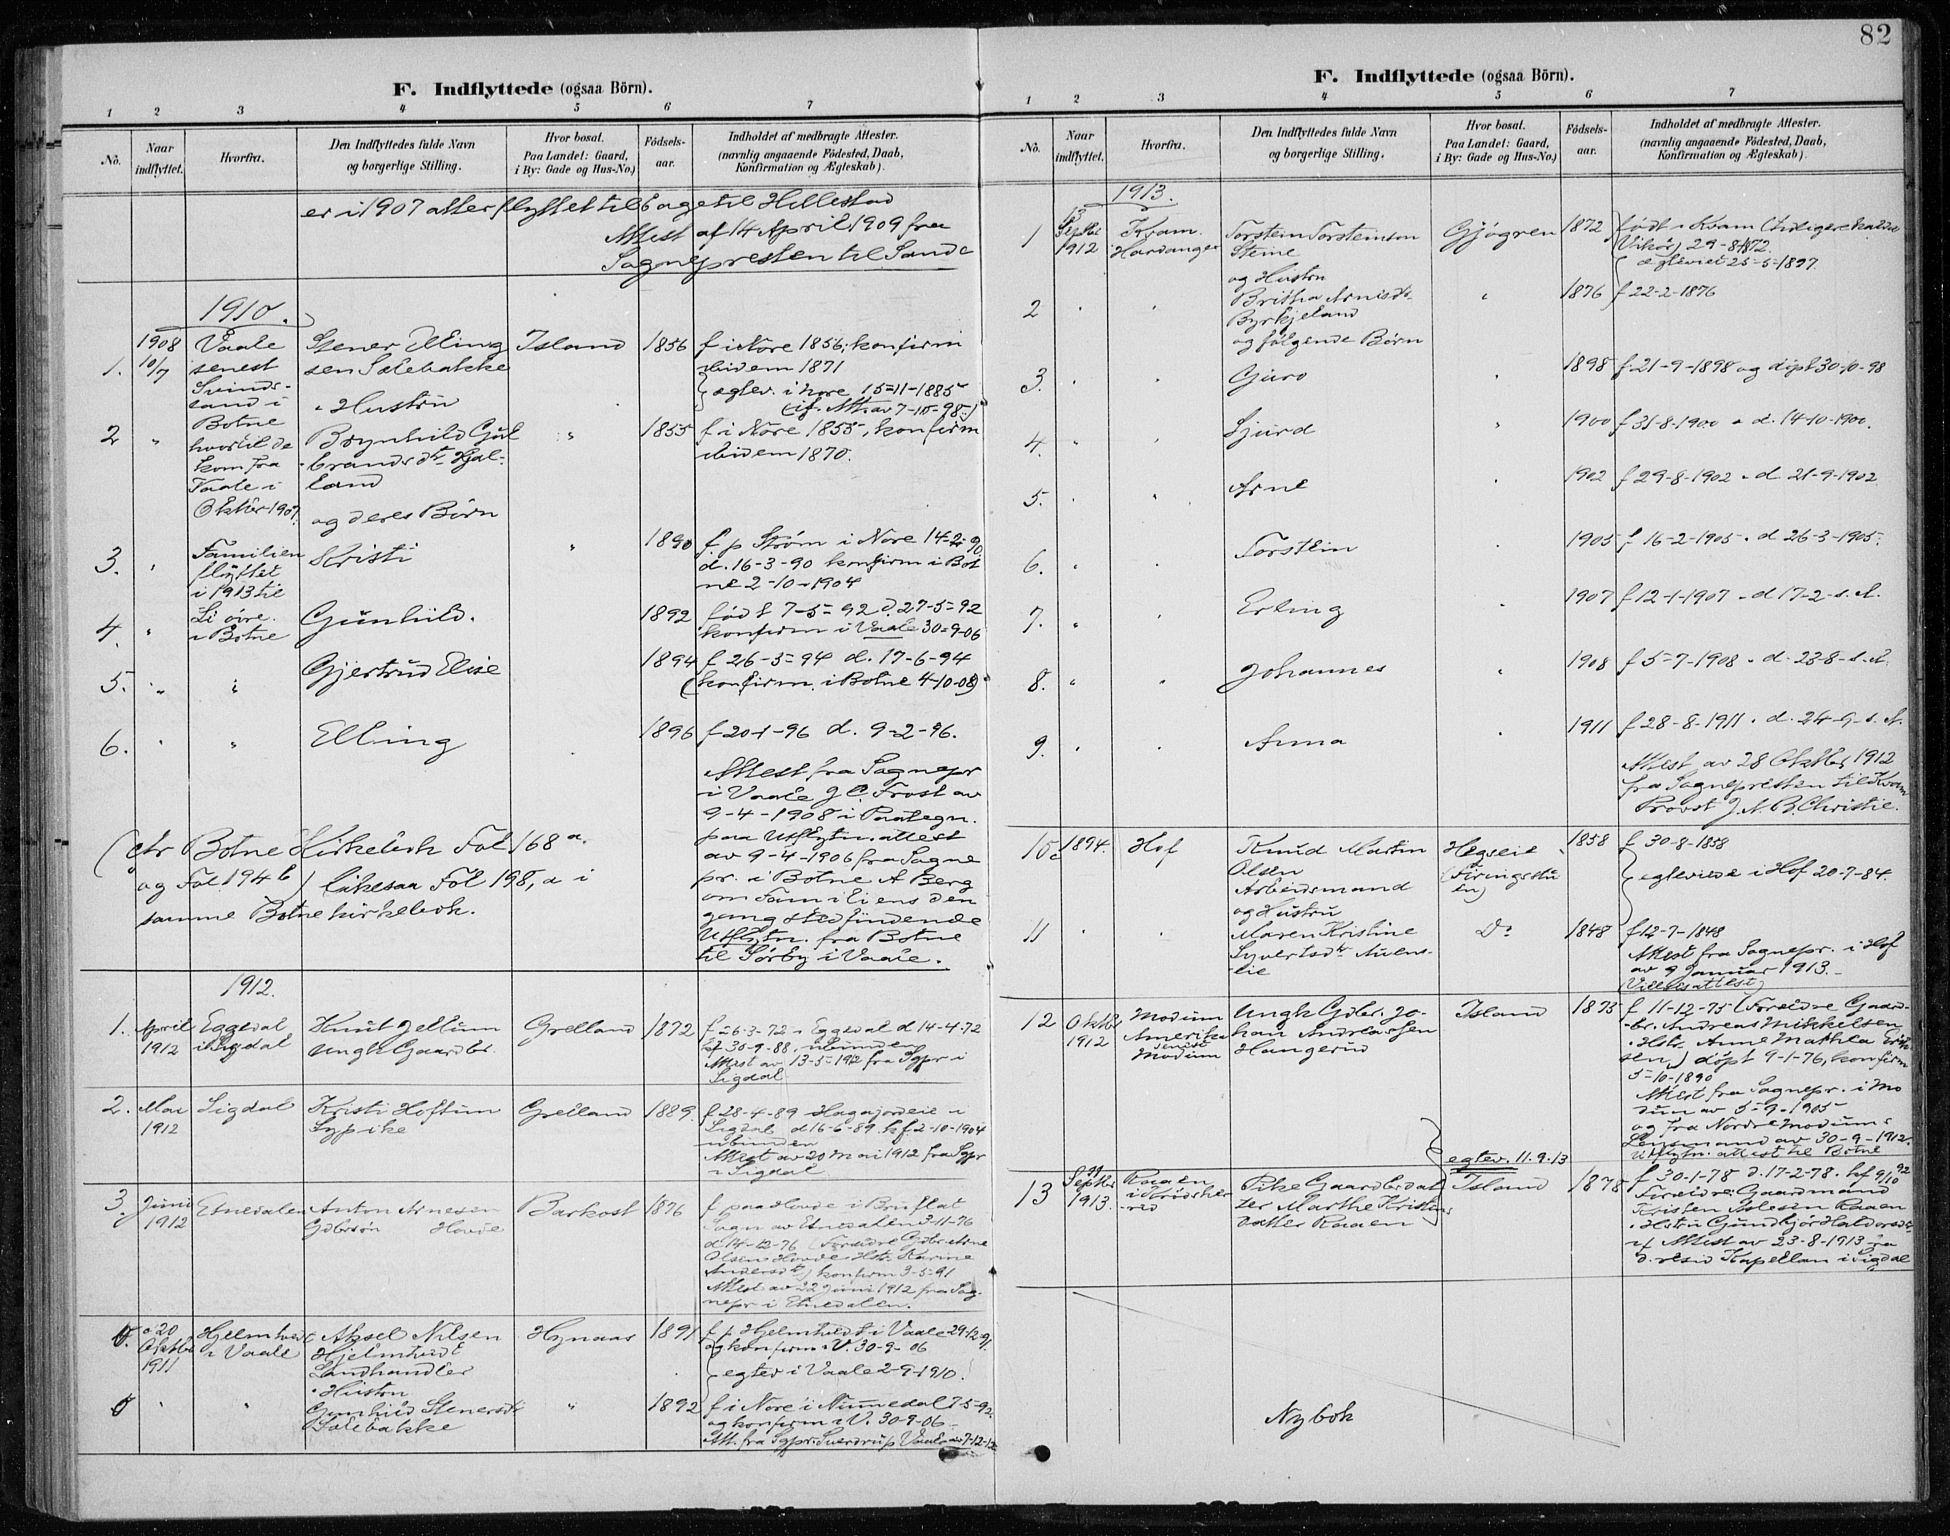 82
F. Indflyttede (ogsaa Börn).
1 2 3 4 5 6 7
No. Naar indflyttet. Hvorfra. Den Indflyttedes fulde Navn og borgerlige Stilling. Hvor bosat. Paa Landet: Gaard, i By: Gade og Hus-No.) Födsels-aar. Indholdet af medbragte Attester. (navnlig angaaende Födested, Daab, Konfirmation og Ægteskab).
er i 1907 atter flyttet til Hillestad
Attest af 14 April 1909 fra
Sognepresten til Sande
1910.
1. 1908 10/7 Vaale senest Svinds-sand i Botne Stener Elling sen Sælebakke Island 1856 f i Nore 1856; konfirm
ibidem 1871
egtev. i Nore 15-11-1885
(if. Att. av 7-10-98.)
" Hustru
2 " hvortil de kom fra Vaale i Oktbr 1907. Brynhild Gul-brandsdtr Hjal-land " 1855 f i Nore 1855, konfirm
ibidem 1870.
og deres Børn
3. " Familien flyttet i 1913 til Kristi " 1890 f. p Strøm i Nore 14-2-90
d. 16-3-90 konfirm i Bot
ne 2-10-1904
4. " Li øvre i Botne Gunhild. 1892 född 7-5-92 d 27-5-92
konfirm i Vaale 30-9-06
5. " " Gjertrud Elise 1894 f 26-3-94 d. 17-6-94
(konfirm. i Botne 4-10-08)
6. " " Elling 1896 f 20-1-96 d. 9-2-96.
Attest fra Sognepr
i Vaale J C. Frost av
9-4-1908 i Paategn.
paa Utflytn. attest
av 9-4-1906 fra Sogne
pr. i Botne A Berg
om Familiens den
gang stedfindende
Utflytn. fra Botne
til Sørby i Vaale.
(cfr Botne Kirkebok Fol 168 a.
og Fol 194 b) likesaa Fol 198, a i
samme Botne kirkebok.
1912.
1. April 1912 Eggedal i Sigdal Knut Jellum Ungk Gaardbr. Grelland 1872 f 26-3-72 i Eggedal d 14-4-72
kf 30-9-88, ubunden
Attest av 13-5-1912 fra Sgpr i
Sigdal
2. Mai 1912 Sigdal Kristi Hoftun Sypike Grelland 1889. f 28-4-89 Hagajordeie i
Sigdal d 16-6-89 kf 2-10-1904
ubunden
Attest av 20 Mai 1912 fra Sgpr
i Sigdal
3. Juni 1912 Etnedalen Anton Arnesen Gdbrsøn Hovde Barkost 1876 f paa Hovde i Bruflat
Sogn av Etnedalen 3-11-76
d 14-12-76 (Forældre Gdbr Arne
Olsen Hovde Hstr Karine
Andersdtr) konfirm 3-5-91
Attest av 22 Juni 1912 fra Sog
nepr i Etnedalen.
20 Oktbr 1911 Hjelmtvedt i Vaale Aksel Nilsen Hjelmtvedt Landhandler Hynaas 1891 f p Hjelmtvedt i Vaale 29-12-91.
og konfirm i V. 30-9-06
egtev i Vaale 2-9-1910.
" Hustru
" " Gunhild Stenersdtr Sælebakke " 1892 f i Nore i Numedal 7-5-92.
og konfirm i V. 30-9-06
Att. fra Sgpr. Sverdrup Vaale av 7-12-12
F. Indflyttede (ogsaa Börn).
1 2 3 4 5 6 7
No. Naar indflyttet. Hvorfra. Den Indflyttedes fulde Navn og borgerlige Stilling. Hvor bosat. Paa Landet: Gaard, i By: Gade og Hus-No.) Födsels-aar. Indholdet af medbragte Attester. (navnlig angaaende Födested, Daab, Konfirmation og Ægteskab).
1913.
1 13 Septbr 1912 Kvam Hardanger Torstein Torsteinson Steine Gjøgren 1872 født i Kvam (tidligere kaldt
Vikør) 29-8-1872
egteviet 25-5-1897.
og Hustru
2 " " Britha Arnisdtr Byrkjeland " 1876 f 22-2-1876
og følgende Børn
3. " " Guro " 1898 f 21-9-1898 og døpt 30-10-98
4. " " Sjurd " 1900 f 31-8-1900 " d. 14-10-1900.
5. " " Arne " 1902 f 29-8-1902 " d 21-9-1902
6. " " Torstein " 1905 f 16-2-1905 " d 26-3-1905.
7. " " Erling " 1907 f 12-1-1907 " d 17-2-s. A.
8. " " Johannes " 1908 f 5-7-1908 " d. 23-8-s. A.
9. " " Anna " 1911 f 28-8-1911 " d. 24-9-s. A.
Attest av 28 Oktbr 1912
fra Sognepresten til Kvam
Provst J. A. B. Christie.
10 1894. Hof Knud Martin Olsen Arbeidsmand Hegseie 1858 f 30-8-1858
egteviede i Hof 20-7-84.
og Hustru
11 " " Maren Kristine Syvertsdtr Auens-lie Do 1848 f 12-7-1848
Attest fra Sognepr. i Hof
av 9 Januar 1913.-
(Vielsesattest)
12 Oktbr 1912 Modum Amerika senest Modum Ungk Gdbr. Jo-han Andreassen Haugerud Island 1875 f 11-12-75 (Forældre Gaard-
br. Andreas Mikkelsen
" Hstr. Anne Mathea Erik
sen) døpt 9-1-76, konfirm
5-10-1890
Attest fra Sognepr. i Mo
dum av 5-9-1905
og fra Nordre Modums
Lensmand av 30-9-1912.
Utflytn. attest til Botne
egtev. 11.9.13
13 Septbr 1913. Raaen i Krødsher-red Pike Gaardbrdat ter Marthe Kristens datter Raaen Island 1878 f 30-1-78 d. 17-2-78. kf 9/10 92
Forældre: Gaardmand
Kristen Aslesen Raaen
" Hstru Gunbjør Haldorsdtr
if Attest av 23-8-1913 fra
d. resid Kapellan i Sigdal
Ny bok